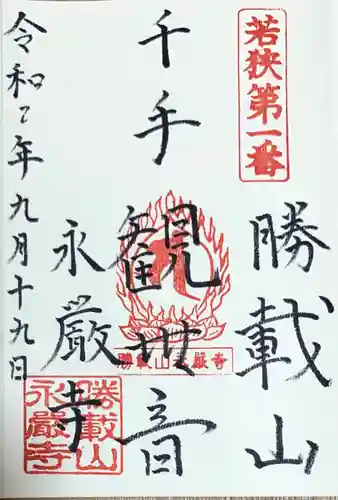 若狭第一番
勝載山
千手
観世音
無𫸩
永厳寺
令和2年九月十九日
勝載山永厳寺
勝載山
永厳寺